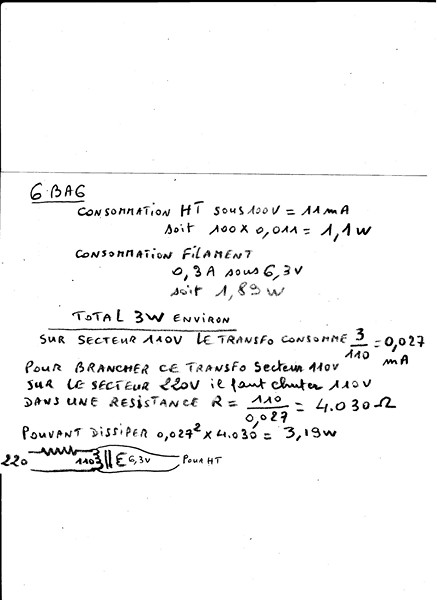 6.BA6
CONSOMMATION HT SOUS 100V = 11mA
soit 100 x 0,011 = 1,1w
CONSOMMATION FILAMENT
0,3A sous 6,3v
soit 1,89w
TOTAL 3W ENVIRON
SUR SECTEUR 110V LE TRANSFO CONSOMME 3/110 = 0,027 mA
POUR BRANCHER CE TRANSFO Secteur 110V
SUR LE SECTEUR 220V il faut chuter 110V
DANS UNE RESISTANCE R = 110/0,027 = 4.030 Ω
POUVANT DISSIPER 0,027² x 4.030 = 3,19w
220 110 6,3V POUR HT